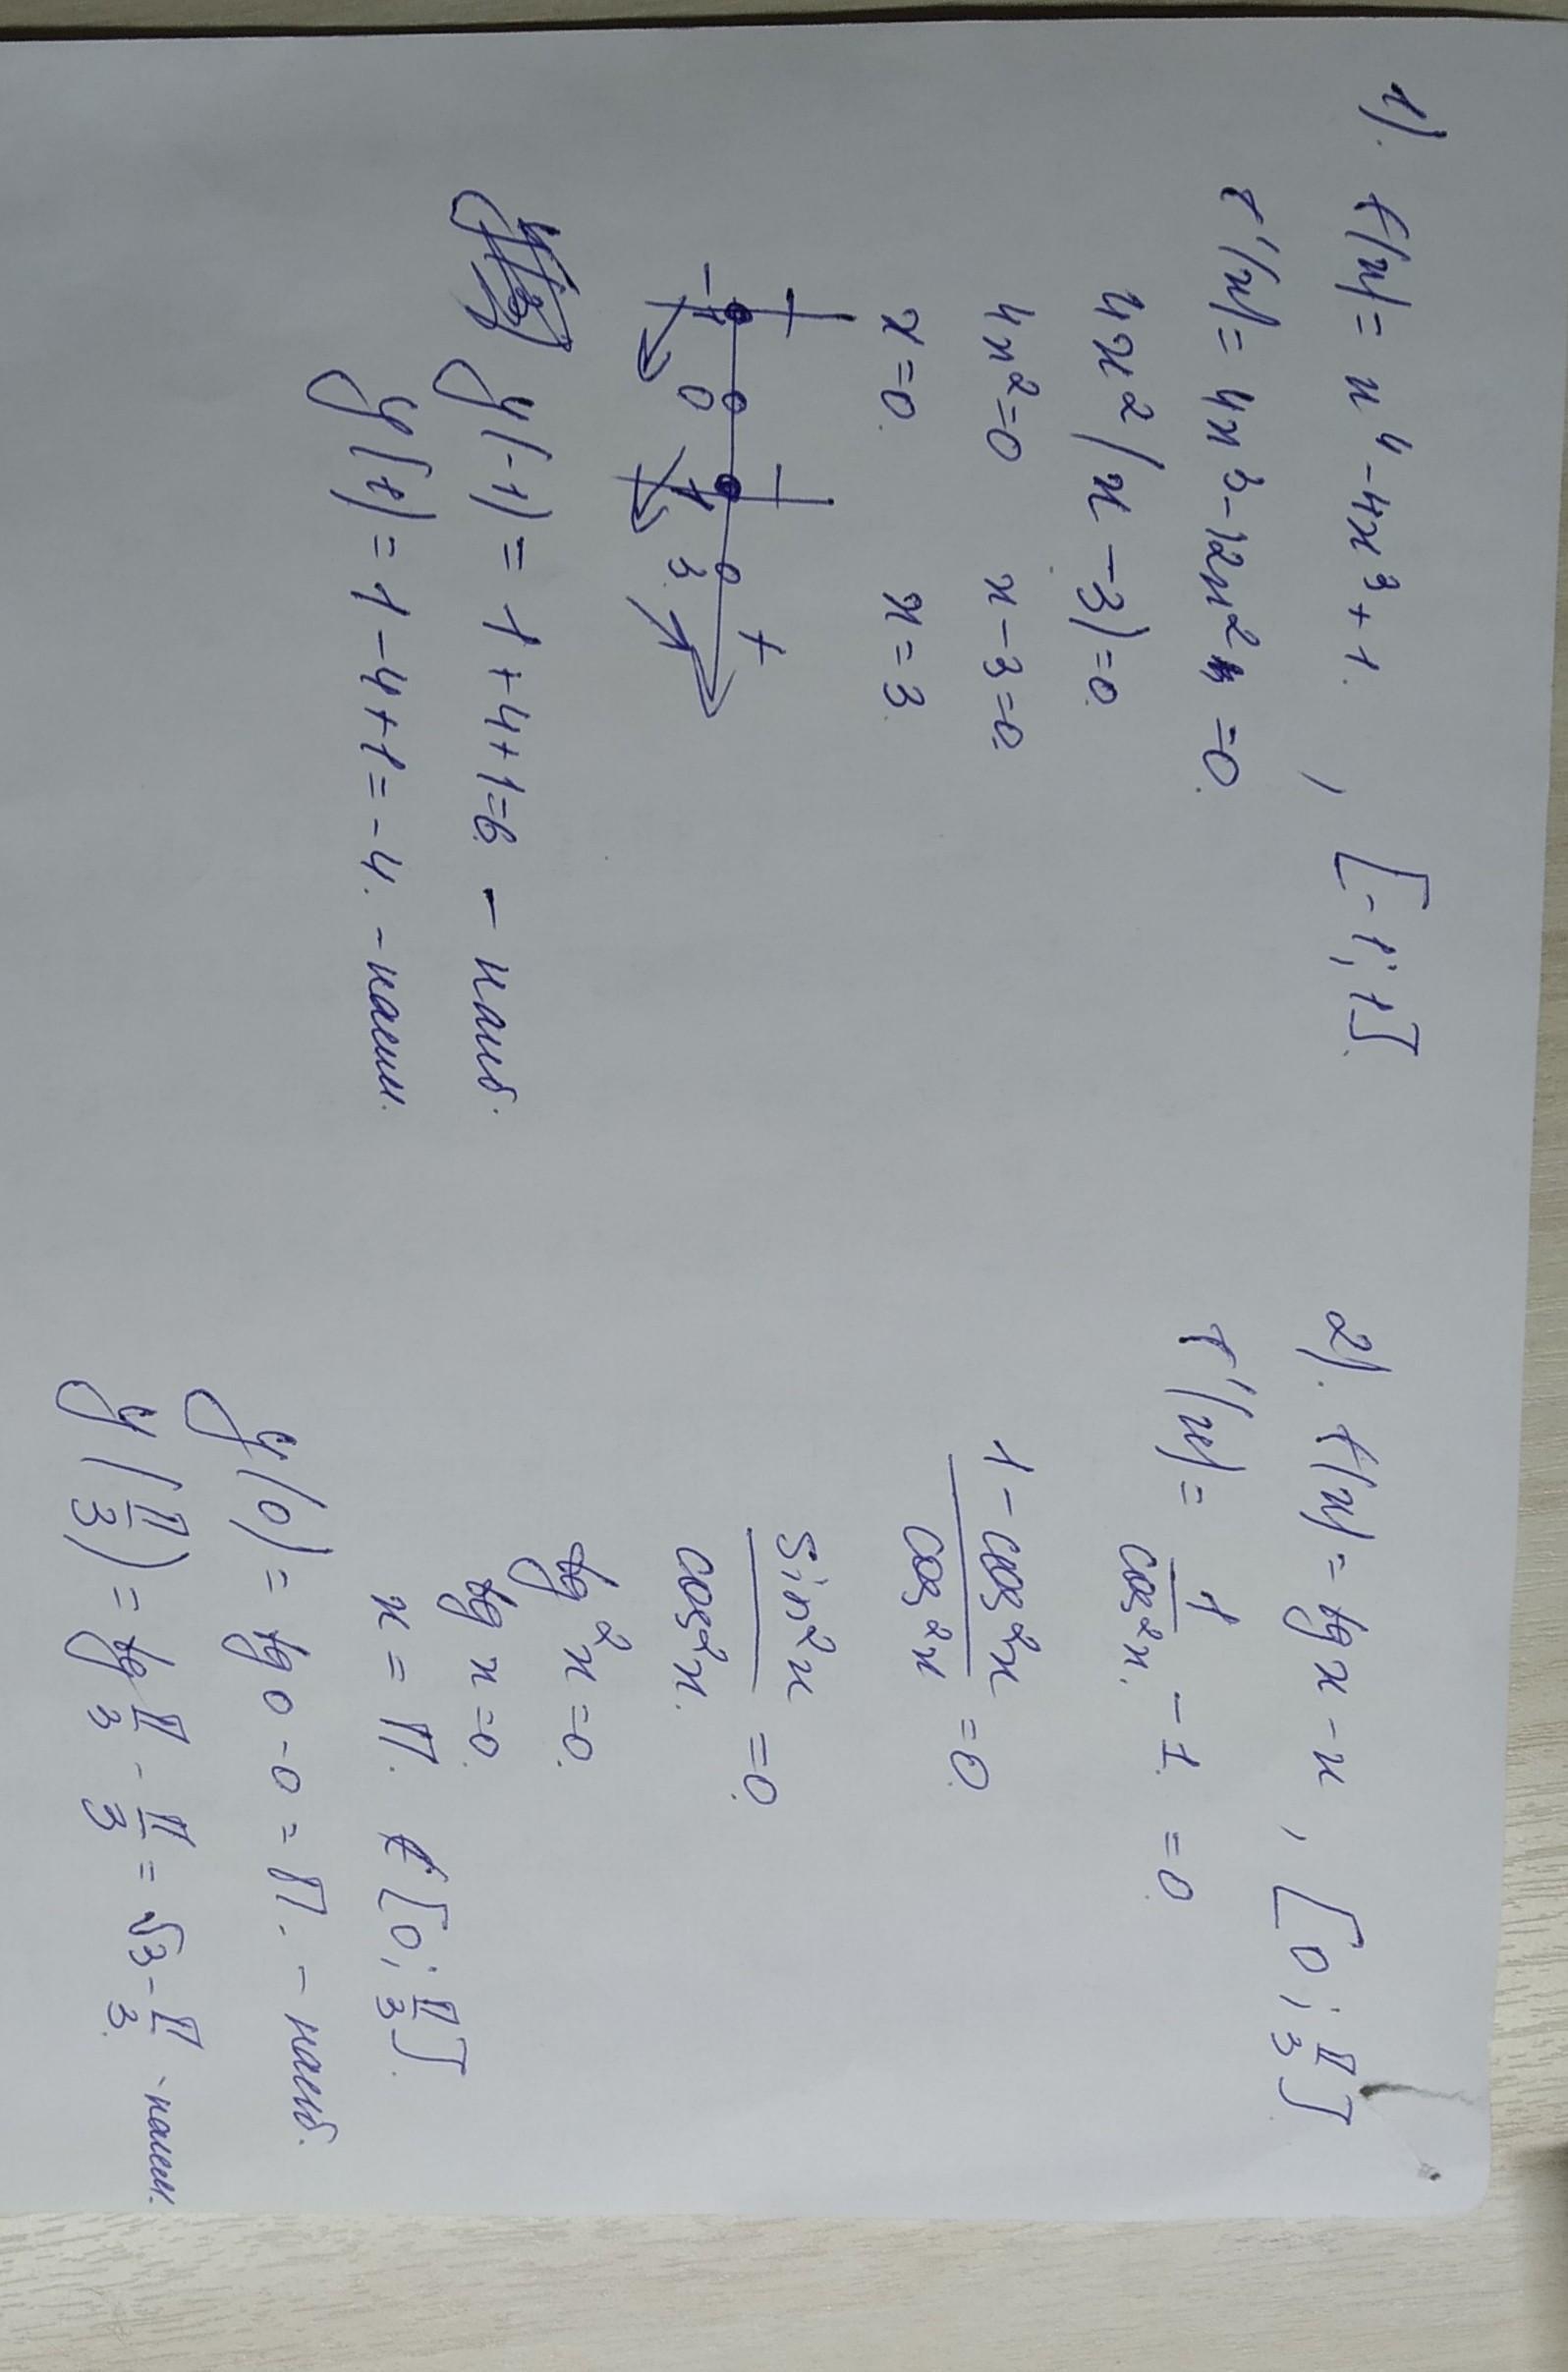 1). f(x) = x⁴ - 4x³ + 1. , [-1; 1].
f'(x) = 4x³ - 12x² = 0.
4x² (x - 3) = 0.
4x² = 0 x - 3 = 0.
x = 0. x = 3.
- - - +
-1 0 1 3
y(-1) = 1 + 4 + 1 = 6. - наиб.
y(1) = 1 - 4 + 1 = -4. - наим.
2). f(x) = tg x - x , [0; π/3]
f'(x) = 1/cos²x. - 1. = 0
(1 - cos²x)/cos²x = 0
sin²x/cos²x. = 0.
tg²x = 0.
tg x = 0.
x = π. ∉ [0; π/3].
y(0) = tg 0 - 0 = π. - наиб.
y(π/3) = tg π/3 - π/3 = √3 - π/3. - наим.